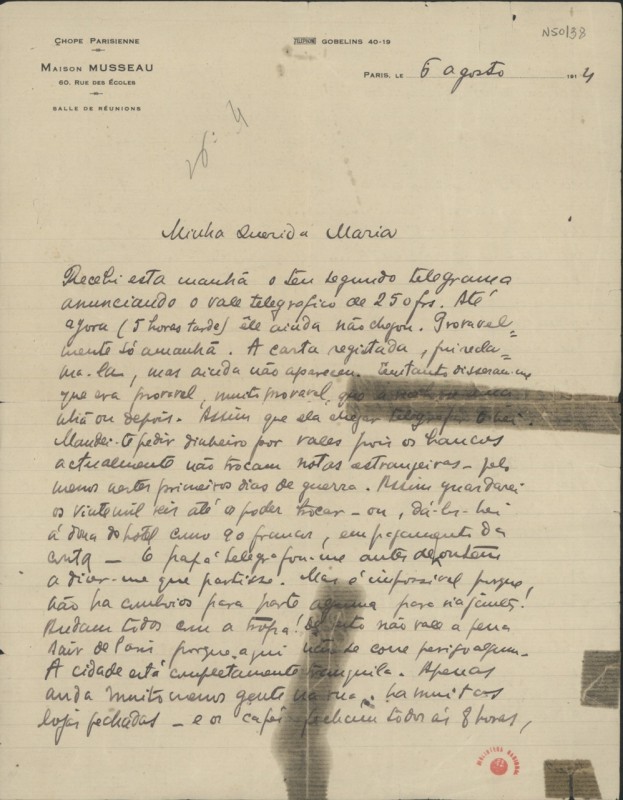 N50/38
CHOPE PARISIENNE
MAISON MUSSEAU
60, RUE DES ÉCOLES
SALLE DE RÉUNIONS
TÉLÉPHONE GOBELINS 40-19
PARIS, LE 6 agosto 1914
Minha Querida Maria
Recebi esta manhã o teu segundo telegrama
anunciando o vale telegrafico de 250 frs. Até
agora (5 horas tarde) êle ainda não chegou. Provavel-
mente só amanhã. A carta registada, fui recla-
ma-la, mas ainda não apareceu. Emtanto disseram-me
que era provavel, muito provavel, que a
nhã ou depois. Assim que ela chegar telegrafo
Mandei-te pedir dinheiro por vales pois os bancos
actualmente não trocam notas estrangeiras – pelo
menos nestes primeiros dias de guerra. Assim guardarei
os vinte mil reis até o poder trocar – ou, dá-los-hei
á dona do hotel como 90 francos, em pagamento da
conta – O papá telegrafou-me antes de ontem
a dizer-me que partisse. Mas é impossivel porque
não ha comboios para parte alguma para viajantes!
Andam todos com a tropa! De resto não vale a pena
sair de Paris porque aqui não se corre perigo algum.
A cidade está completamente tranquila. Apenas
anda muito menos gente na rua, ha muitas
lojas fechadas – e os cafés fecham todos ás 8 horas,
BIBLIOTECA NACIONAL